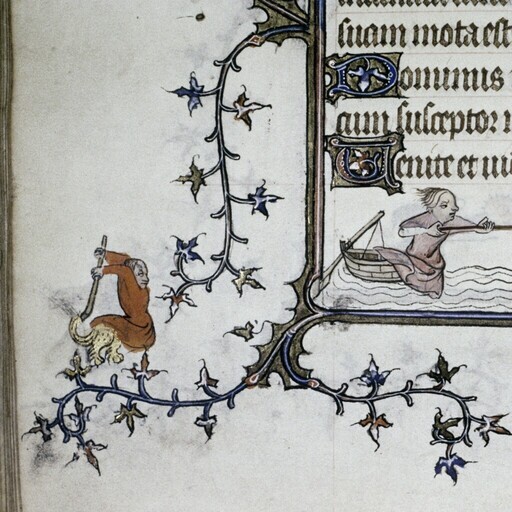 suam mota est
Dominus
cum susceptor n
Venite et vi